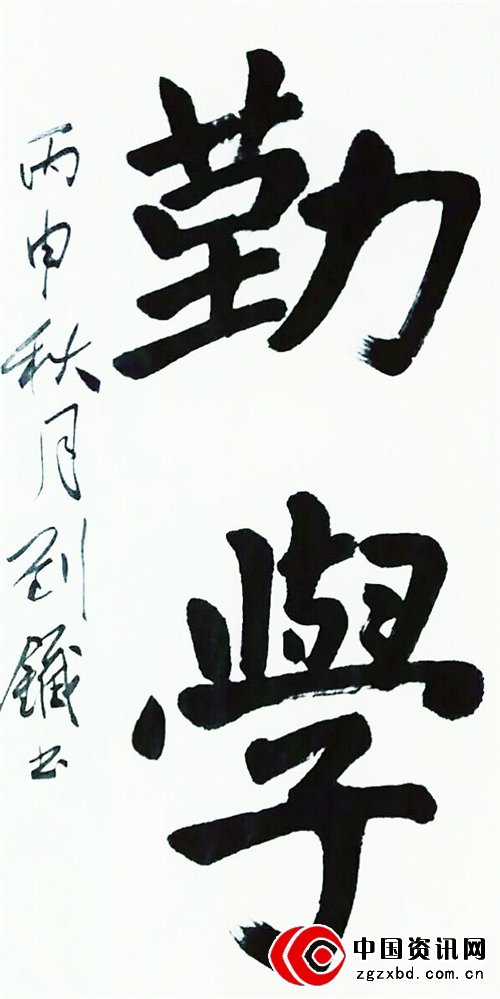 勤學
丙申秋月刘鐵书
中国资讯网
zgzxbd.com.cn